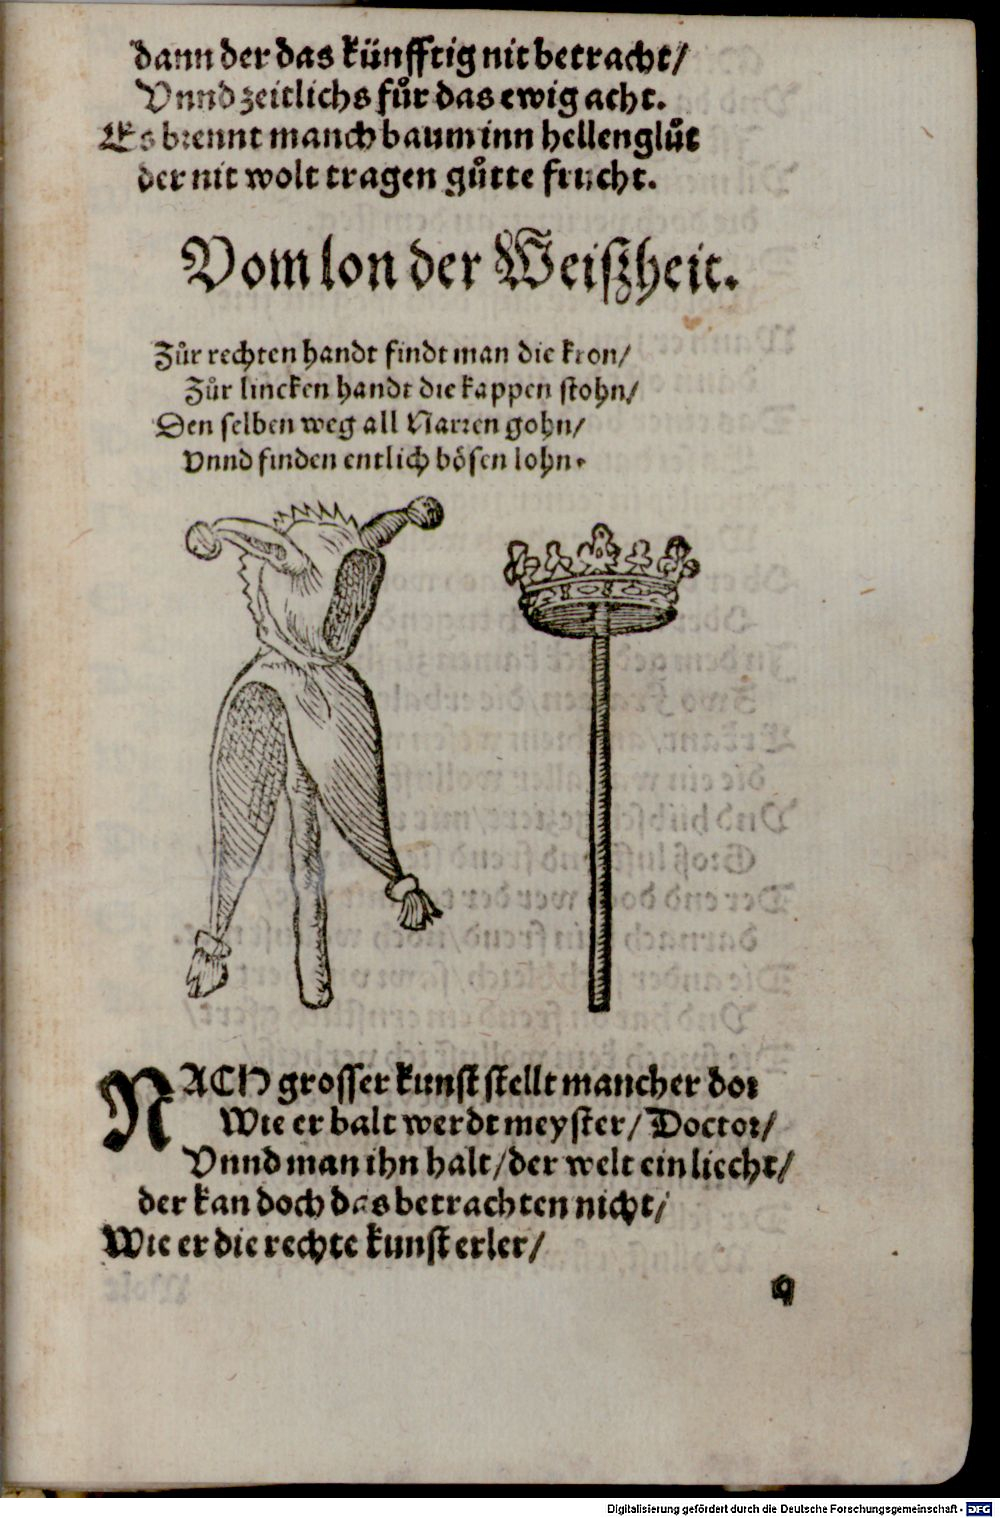 dann der das künfftig nit betracht/
Vnnd zeitlichs fuͤr das ewig acht.
Es brennt manch baum inn hellengluͤt
der nit wolt tragen guͤtte frucht.
Vom lon der Weiſzheit.
Zuͦr rechten handt findt man die kron/
Zuͦr lincken handt die kappen ſtohn/
Den ſelben weg all Narren gohn/
Vnnd finden entlich böſen lohn.
NACH groſſer kunſt ſtellt mancher dor
Wie er balt werdt meyſter/ Doctor/
Vnnd man ihn halt/der welt ein liecht/
der kan doch das betrachten nicht/
Wie er die rechte kunſt erler/
q
Digitalisierung gefördert durch die Deutsche Forschungsgemeinschaft - DFG